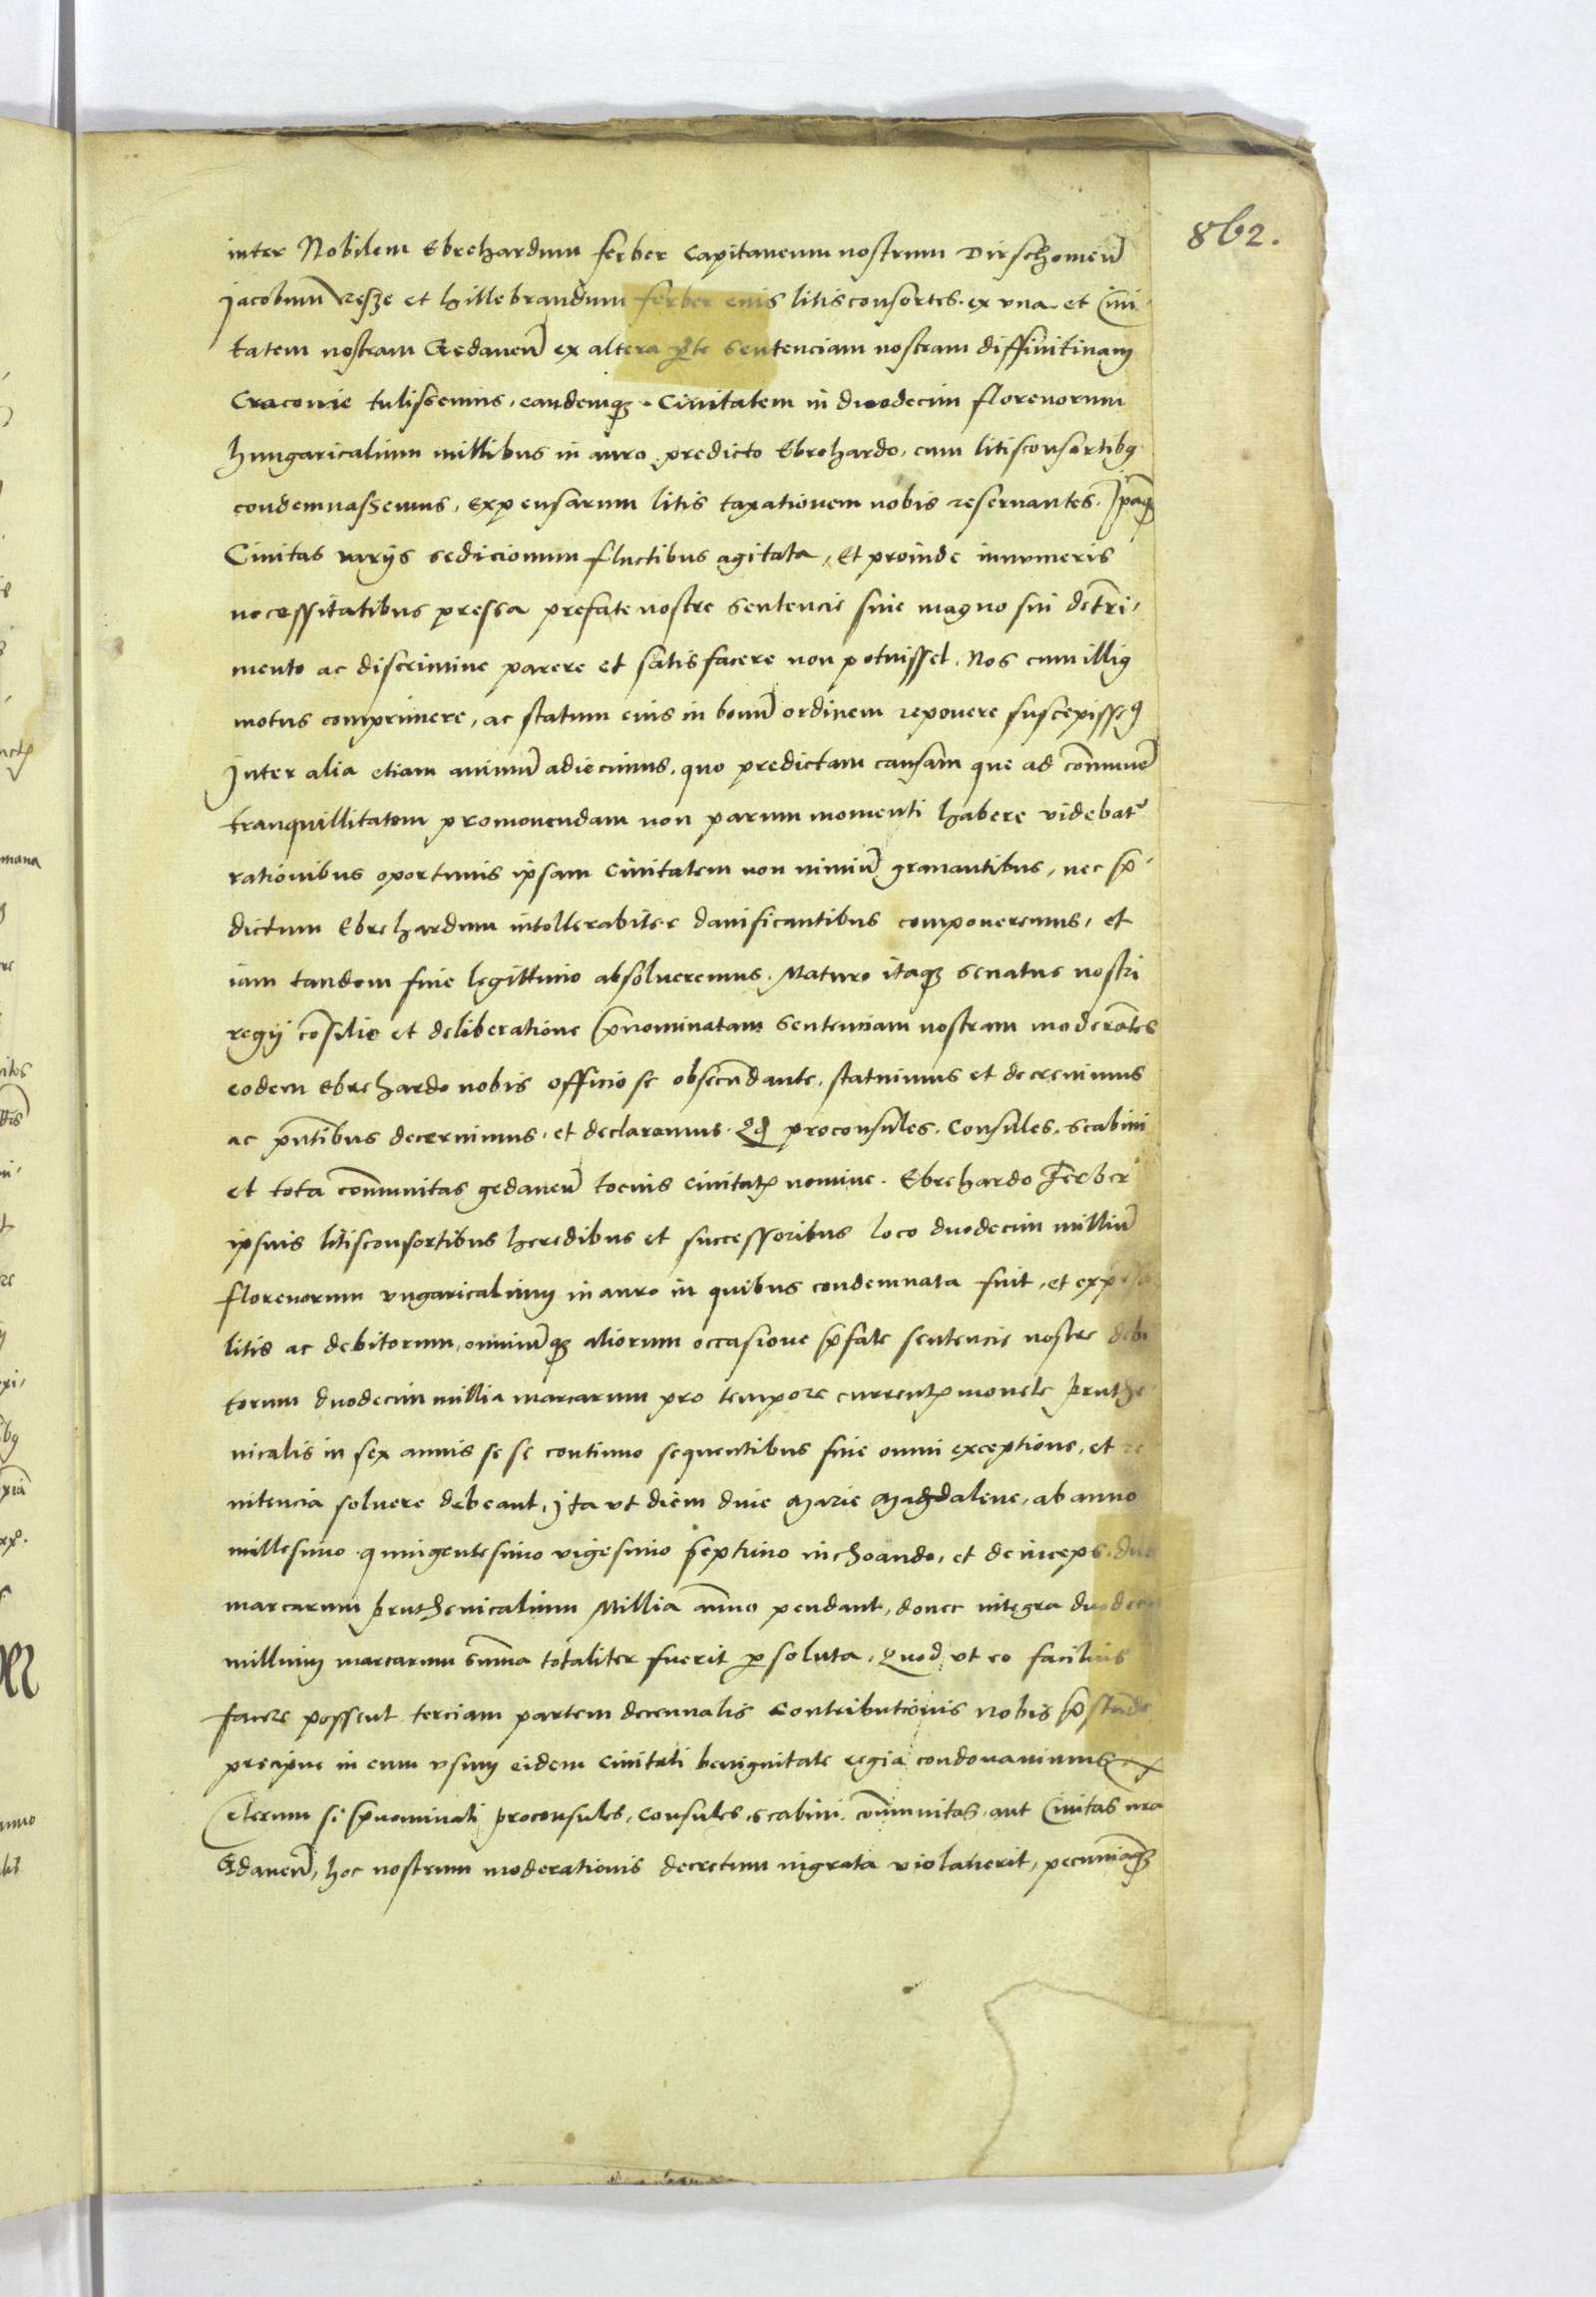 862.
inter Nobilem Ebrehardum ferber Capitaneum nostrum Dirschomeñ
Jacobum Resze et hillebrandum ferber euis litisconsortes. ex vna et Ciui
tatem nostram Gedaneñ ex altera pte sentenciam nostram diffinitiuam
Cracouie tulissemus, eandemqꝫ Ciuitatem in duodecim florenorum
hungaricalium millibus in auro predicto Ebrehardo, cum litisconsortibꝯ
condemnassemus, expensarum litis taxationem nobis reseruantes. Ipaqꝫ
Ciuitas varijs sedicionum fluctibus agitata, Et proinde innumeris
necessitatibus pressa prefate nostre sentencie sine magno sui detri,
mento ac discrimine parere et satisfacere non potuisset. Nos cum illiꝯ
motus comprimere, ac statum eius in bonū ordinem reponere suscepissꝫ
Inter alia etiam animū adiecimus, quo predictam causam que ad cōmunē
tranquillitatem promouendam non parum momenti habere videbat
rationibus oportunis ipsam Ciuitatem non nimiū grauantibus, nec p̄
dictum Ebrehardum intollerabiter danificantibus componeremus, et
iam tandem fine legittimo absolueremus. Maturo itaqꝫ senatus nostri
regij cōsilio et deliberatione p̄nominatam sentenciam nostram moderātes
eodem Ebrehardo nobis officiose obsecūdante, statuimus et decreuimus
ac pn̄tibus decernimus, et declaramus. Qd proconsules. Consules. scabini
et tota cōmunitas gedaneñ tocius ciuitatꝭ nomine. Ebrehardo Ferber
ipsius litisconsortibus heredibus et successoribus loco duodecim milliū
florenorum vngaricalium in auro in quibus condemnata fuit, et expensa
litis ac debitorum, omniūqꝫ aliorum occasione p̄fate sentencie nostre debi
torum duodecim millia marcarum pro tempore currentꝭ monete pruthe
nicalis in sex annis se se continuo sequentibus sine omni exceptione, et re
nitencia soluere debeant, Ita vt diem diue Marie Magdalene, ab anno
millesimo quingentesimo vigesimo septimo inchoando, et deinceps, duo
marcarum pruthenicalium Millia añuo pendant, donec integra duodecim
millium marcarum sum̄a totaliter fuerit ꝑsoluta, Quod vt eo facilius
facere possent terciam partem decennalis Contributionis nobis p̄stande
precipue in eum vsum eidem Ciuitati benignitate regia condonauimus
Ceterum si p̄nominati proconsules, Consules, scabini. cōmunitas. aut Ciuitas nr̄a
Gdaneñ, hoc nostrum moderationis decretum ingrata violauerit, pecuniāqꝫ